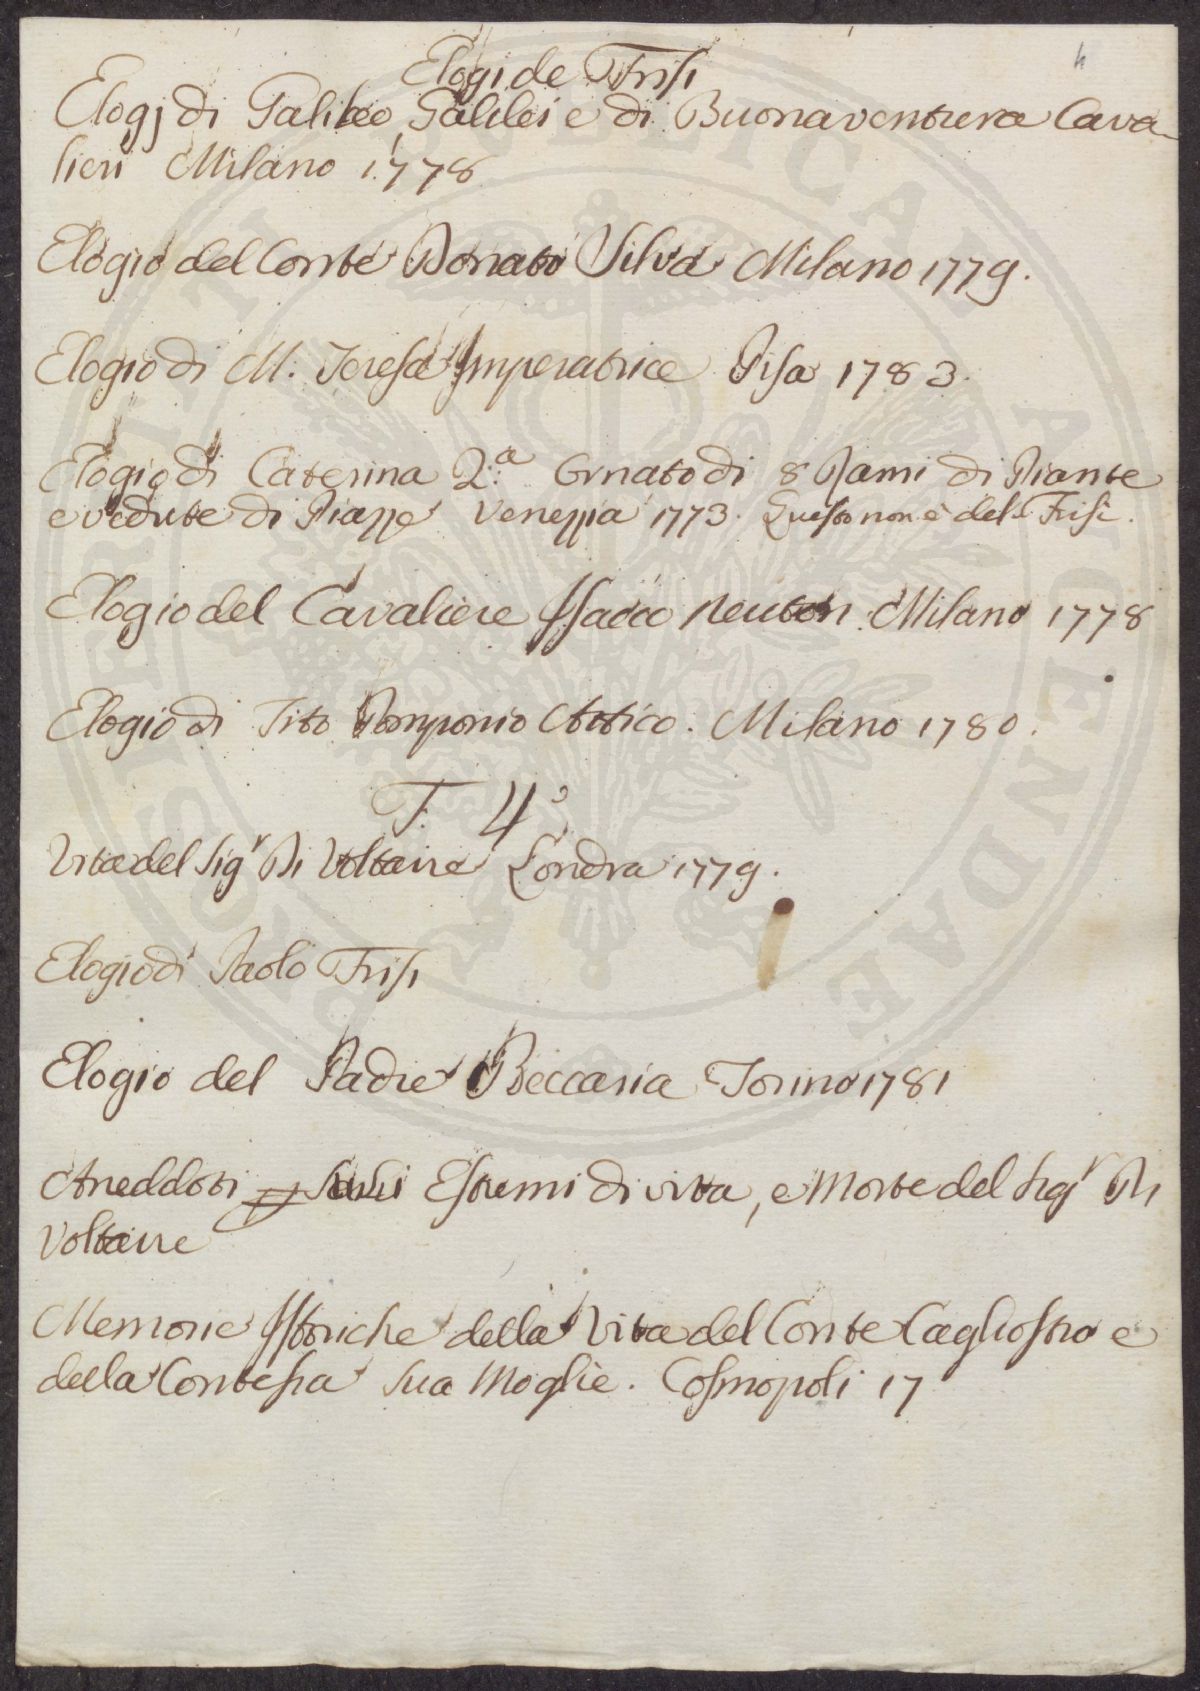 4
Elogi de Frisi
Elogj di Galileo Galilei e di Buonaventura Cava-
lieri Milano 1778
Elogio del Conte Donato Silva Milano 1779.
Elogio di M: Teresa Imperatrice Pisa 1783.
Elogio di Caterina 2.a Ornato di 8 Rami di Piante
e vedute di Piazze Venezzia 1773. Questo non è del Frisi.
Elogio del Cavaliere Isacco Neuton Milano 1778
Elogio di Tito Pomponio Attico. Milano 1780.
F. 4°
Vita del Sigr Di Voltaire Londra 1779.
Elogio di Paolo Frisi
Elogio del Padre Beccaria Torino 1781
Aneddoti Sulli Estremi di vita, e Morte del Sigr Di
Voltaire
Memorie Istoriche della Vita del Conte Cagliostro e
della Contessa sua Moglie. Cosmopoli 17